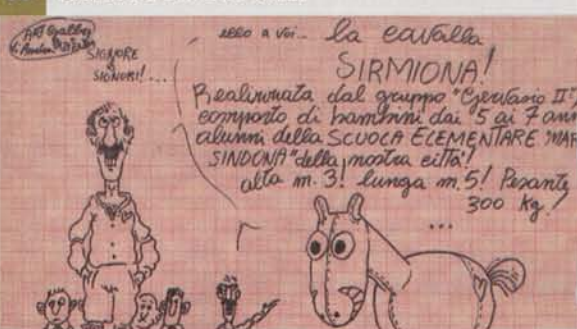 ART Gallery
SIGNORE
E
SIGNORI!...
ecco a voi... la cavalla
SIRMIONA!
Realizzata dal gruppo "Gervasio II"
composto di bambini dai 5 ai 7 ann
alunni della SCUOLA ELEMENTARE "MAR
SINDONA" della nostra città!
alta m. 3! lunga m. 5! Pesante
300 kg.!
...